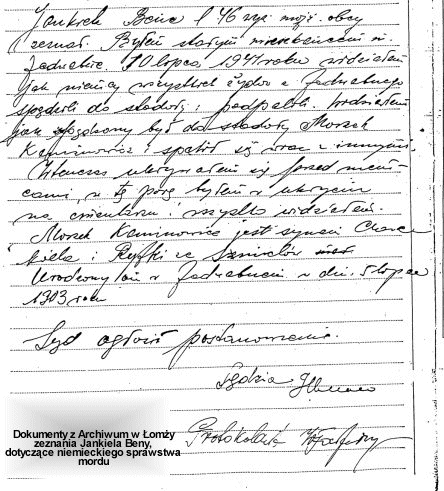 Jankiel Bena l 46 wyz. mojż. obcy
zeznał. Byłem stałym mieszkańcem m.
Jedwabne. 10 lipca 1941 roku widziałem
jak niemcy wszystkich żydów z Jedwabnego
spędzili do stodoły i podpalili. Widziałem
jak spędzony był do stodoły Moszek
Kaminowicz i spalił się wraz z innymi.
Wówczas ukrywałem się przed niem-
cami, w tę porę byłem w ukryciu
na cmentarzu i wszystko widziałem.
Moszek Kaminowicz jest synem
i Ryfki ze
Urodzony był w Jedwabnem w dn. 5 lipca
1903 roku
Sąd ogłosił postanowienie.
Sędzia
Protokolant
Dokumenty z Archiwum w Łomży
zeznania Jankiela Beny,
dotyczące niemieckiego sprawstwa
mordu